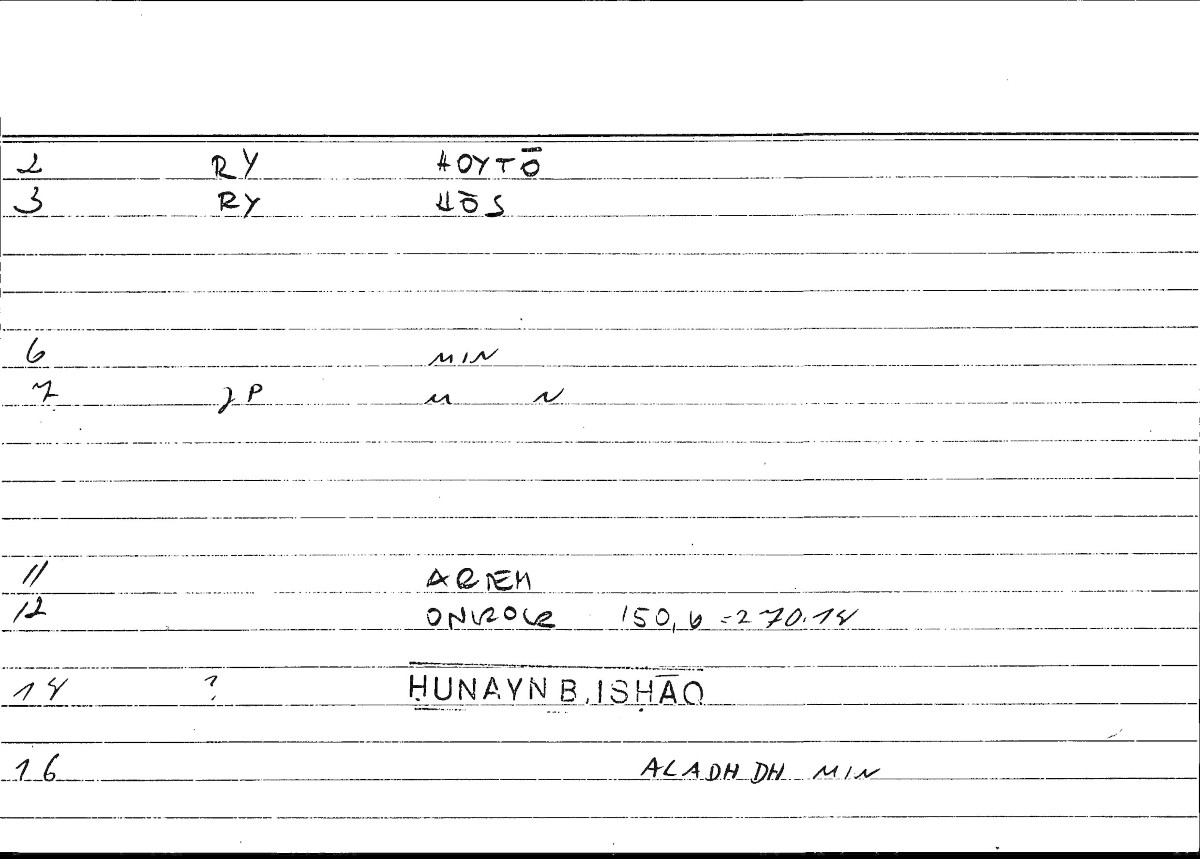 2 RY HOYTŌ
3 RY HŌS
6 MIN
7 JP M N
11 ARTEM
12 ONIROCR 150,6 = 270.14
14 ? ḤUNAYN B. ISḤĀQ
16 ALADHDH MIN